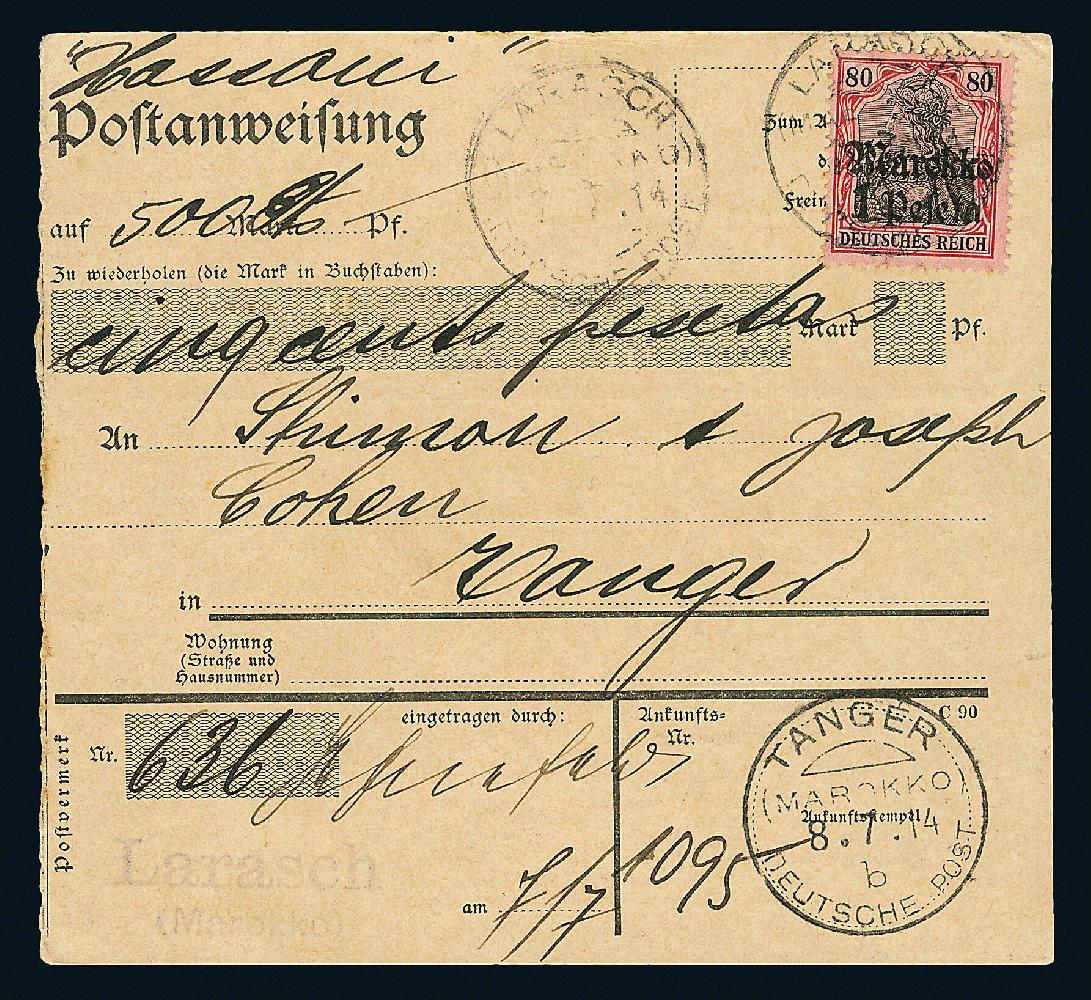 "Hassoui"
Postanweisung
auf 500 Mark Pf.
Zu wiederholen (die Mark in Buchstaben):
cinq cents pesetas Mark Pf.
LARASCH
7.14
DEUTSCHE POST
Zum
Frei
LARASCH
80 80
Marokko
1 Peseta
DEUTSCHES REICH
An Shimon & Joseph
Cohen
in Tanger
Wohnung
(Straße und
Hausnummer)
Postvermerk
Nr. 636
eingetragen durch:
Ankunfts=
Nr.
1095
C 90
TANGER
(MAROKKO)
Ankunftsstempel
8.7.14
b
DEUTSCHE POST
Larasch
(Marokko)
am 7/7